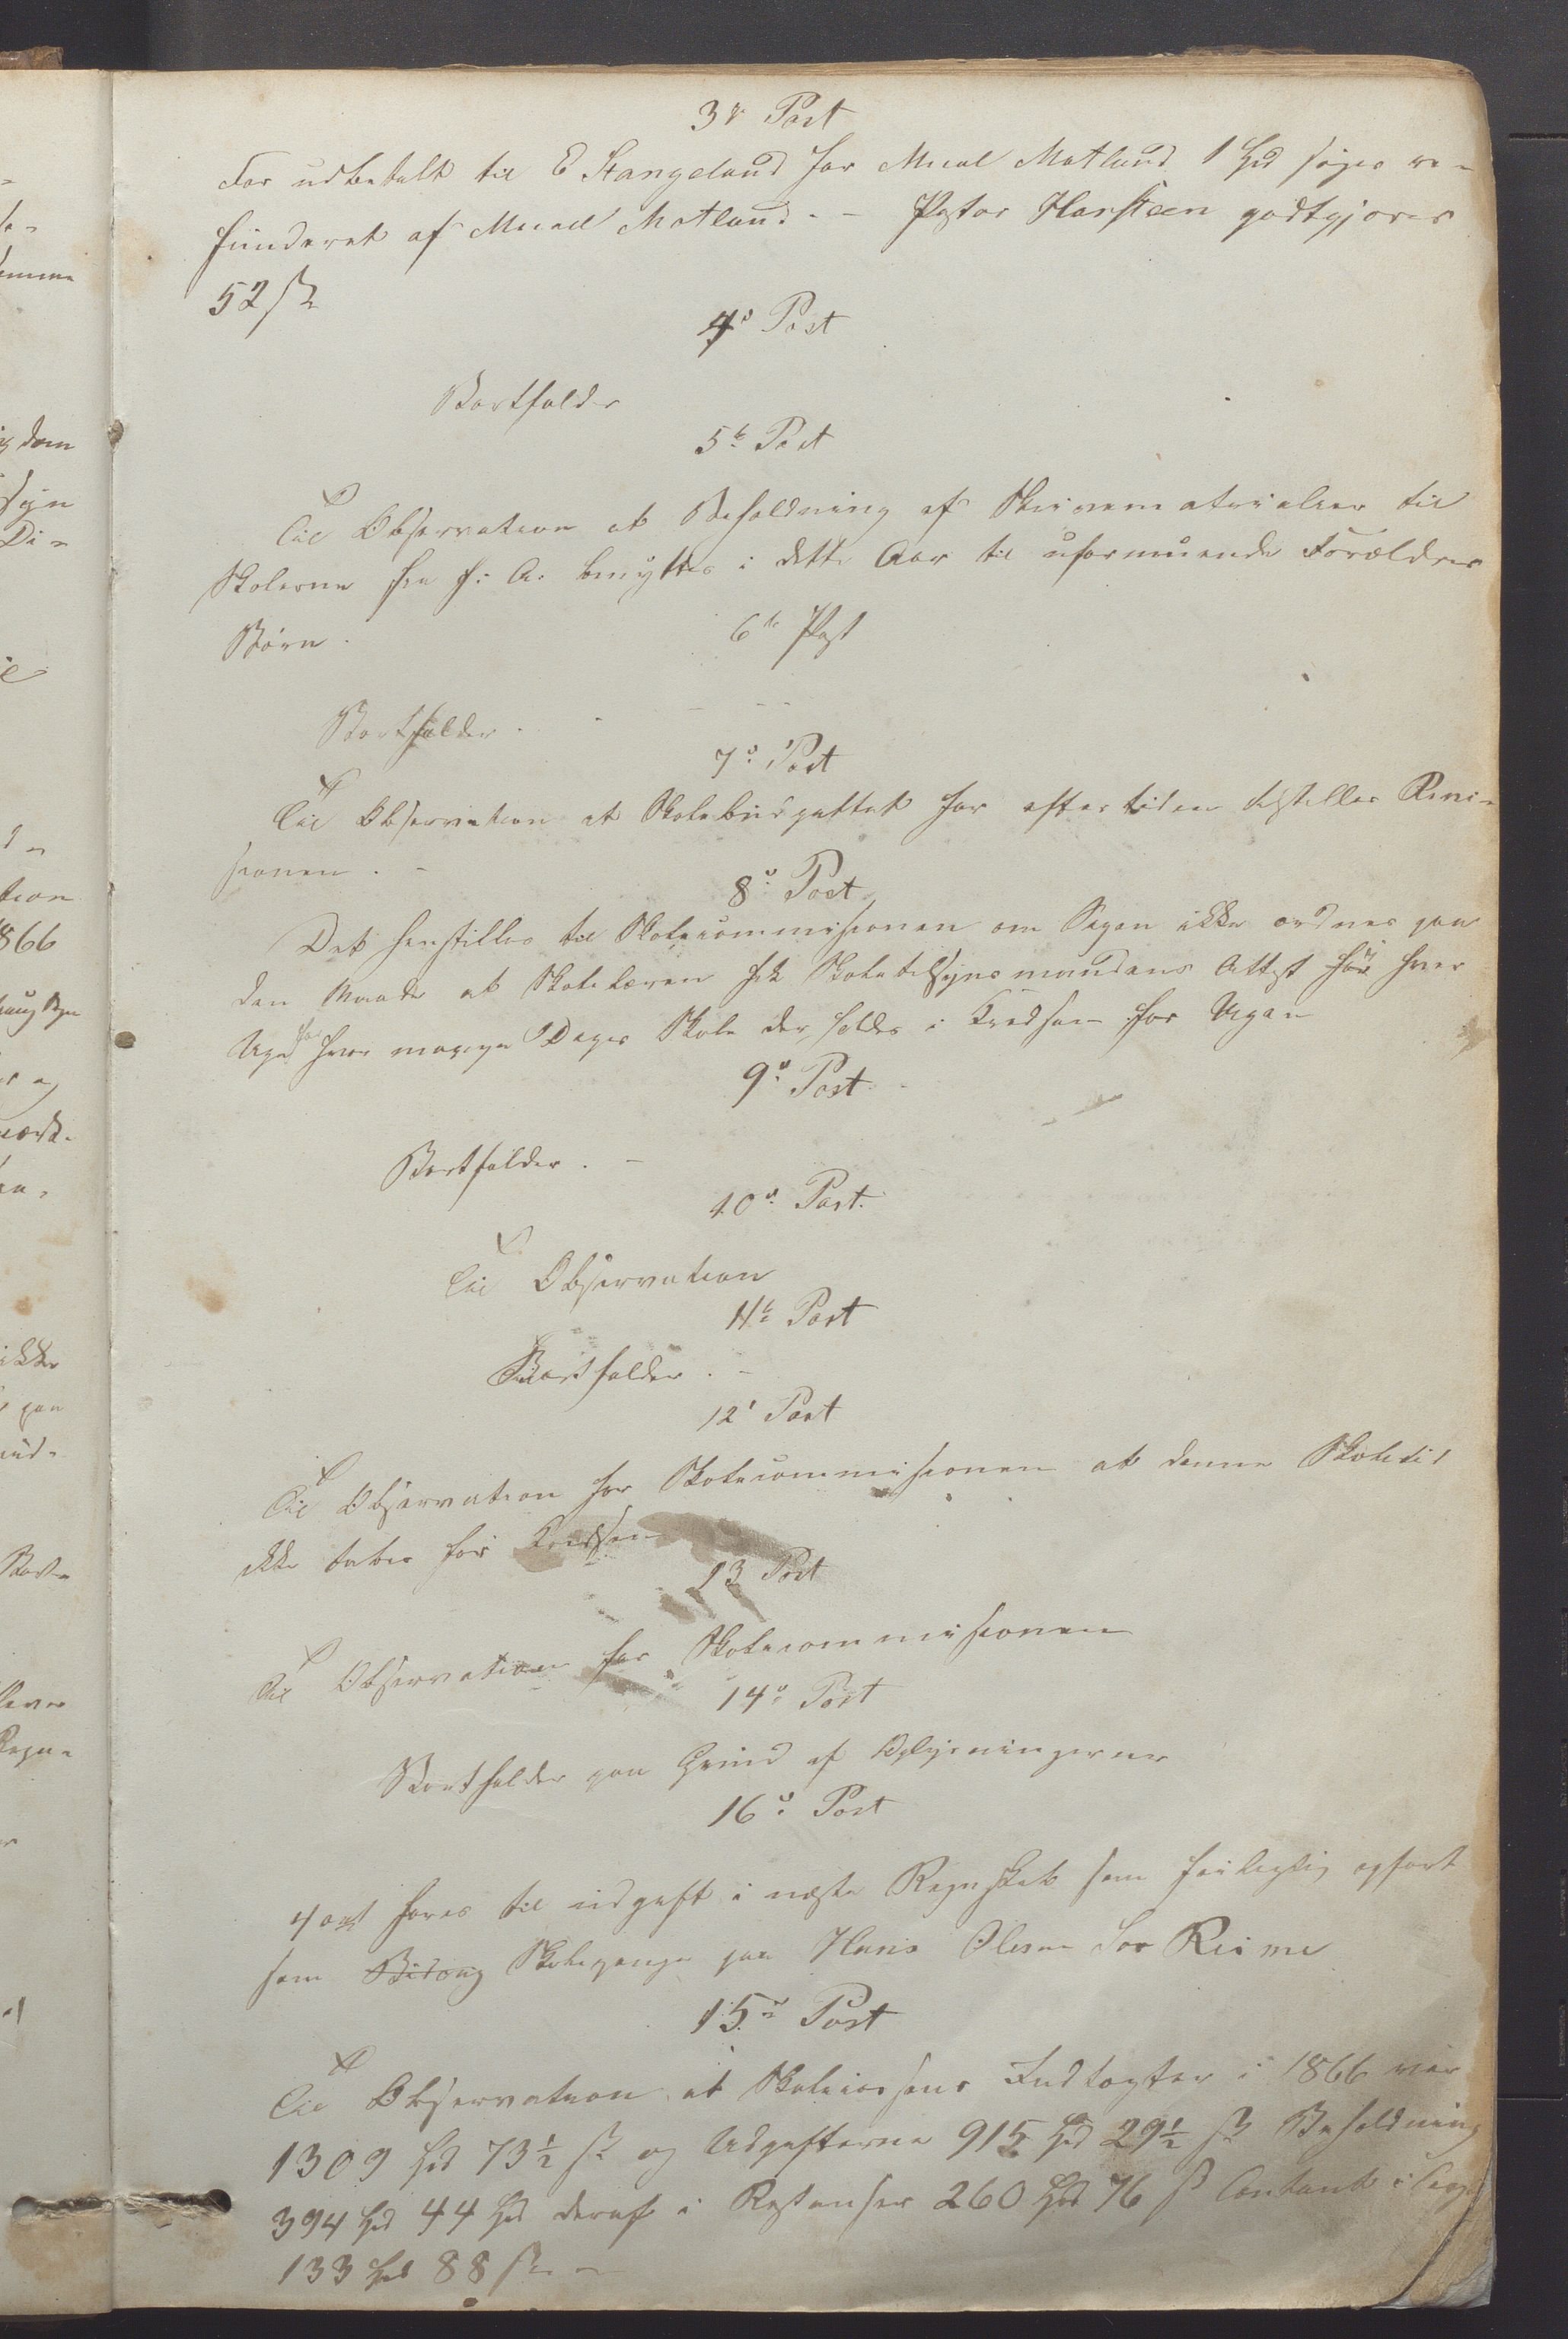 3die Post
For udbetalt til E Stangeland for Mual Motland 1 Spd søges re-
funderet af Muall Motland. - Pastor Harsteen godtgjøres
52 ß
4de Post
Bortfalder
5te Post
Til Observation at Beholdning af Skrivematerialier til
Skolerne fra f: A: benyttes i dette Aar til uformuende Forældres
Børn.
6te Post
Bortfalder.
7de Post
Til Observation at Skolebudgettet for eftertiden tilstilles Revi-
sionen. -
8de Post
Det henstilles til Skolecommisionen om Sagen ikke ordnes paa
den Maade at Skolelæreren fik Skoletilsynsmandens Attest for hver
Uge for hvor mange Dages Skole der holdes i Kredsen for Ugen
9de Post
Bortfalder. -
10de Post.
Til Observation
11te Post
Bortfalder. -
12te Post
Til Observation for Skolecommisionen at denne Skoletid
ikke tabes for Kredsen
13 Post
Til Observation for Skolecommisionen
14de Post
Bortfalder paa Grund af Oplysningerne
16de Post
4 ort føres til udgift i næste Regnskab som feilagtig opført
som Bidrag Skolegange paa Hans Olesen Sør Reime
15de Post
Til Observation at Skolecassens Indtægter i 1866 var
1309 Spd 73½ ß og Udgifterne 915 Spd 29½ ß Beholdning
394 Spd 44 Spd deraf i Restanser 260 Spd 76 ß Contant i Cassa
133 Spd 88 ß -